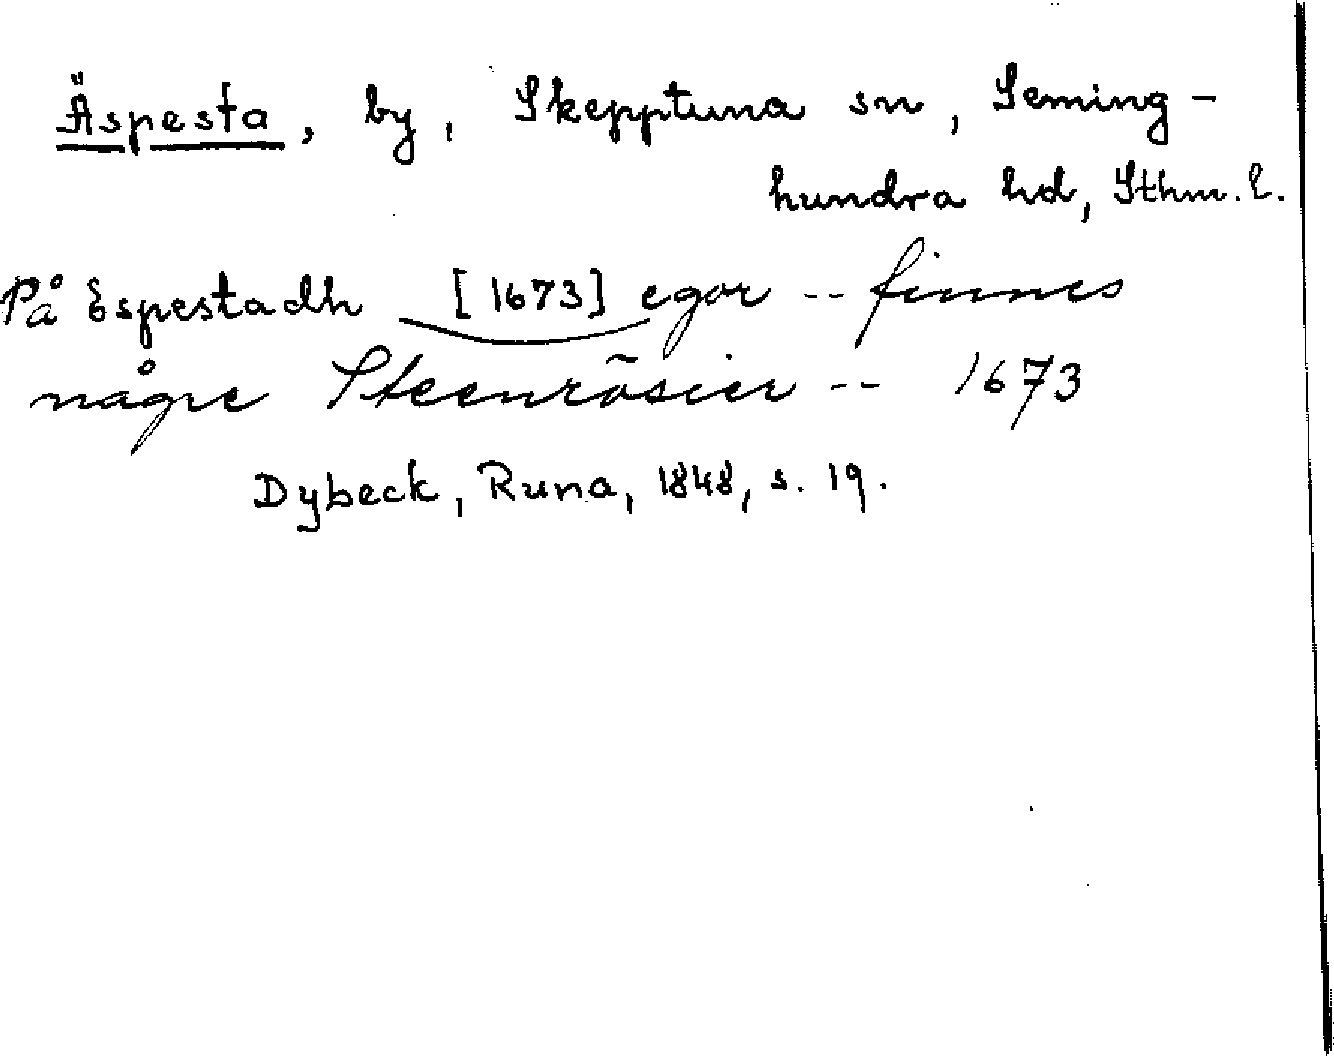 Äspesta, by, Skepptuna sn, Seming-
hundra hd, Sthm. l.
På Espestadh [1673] egor -- finnes
någre Steenrõsier -- 1673
Dybeck, Runa, 1848, s. 19.